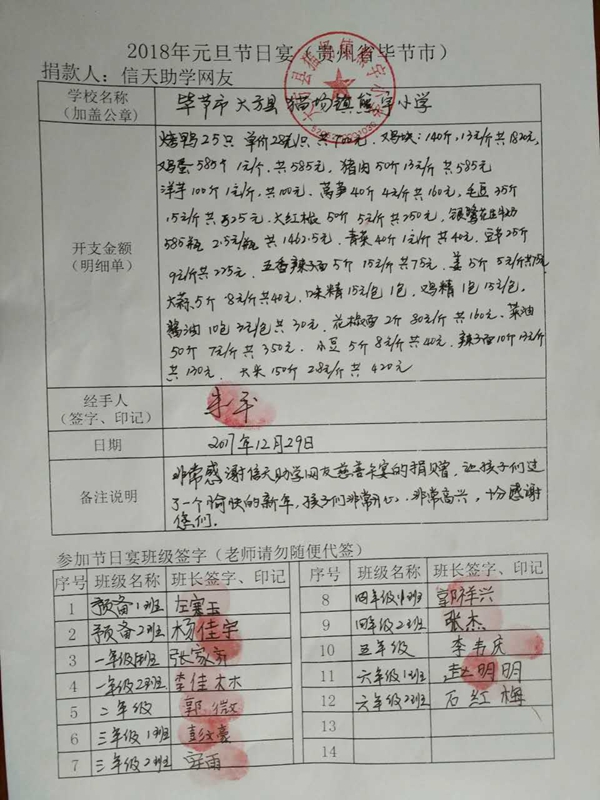 2018年元旦节日宴（贵州省毕节市）
捐款人：信天助学网友
学校名称
（加盖公章）
毕节市大方县猫场镇熊寨小学
开支金额
（明细单）
烤鸭25只 单价28元/只 共700元、鸡块：140斤，13元/斤 共1820元，
鸡蛋585个 1元/个，共585元，猪肉50斤13元/斤 共585元
洋芋100斤1元/斤，共100元、莴笋40斤4元/斤共160元，毛豆35斤
15元/斤共525元、大红椒50斤5元/斤共250元、银鹭花生牛奶
585瓶2.5元/瓶共1462.5元、青菜40斤1元/斤共40元、豆芽25斤
9元/斤共225元、五香辣子面5斤15元/斤共75元、姜5斤5元/斤共
大蒜5斤8元/斤共40元、味精15元/包1包，鸡精1包15元/包，
酱油10包3元/包共30元、花椒面2斤80元/斤共160元、菜油
50斤7元/斤共350元、小豆5斤8元/斤共40元、辣子面10斤13元/斤
共130元、大米150斤2.8元/斤共420元
经手人
（签字、印记）
日期
2017年12月29日
备注说明
非常感谢信天助学网友慈善午宴的捐赠，让孩子们过
了一个愉快的新年，孩子们非常开心、非常高兴，十分感谢
您们。
参加节日宴班级签字（老师请勿随便代签）
序号 班级名称 班长签字、印记 序号 班级名称 班长签字、印记
1 预备1班 左寒玉 8 四年级1班 郭祥兴
2 预备2班 杨佳宇 9 四年级2班 张杰
3 一年级1班 张家齐 10 五年级 李韦庆
4 一年级2班 李佳木 11 六年级1班 赵明明
5 二年级 郭微 12 六年级2班 石红梅
6 三年级1班 彭纹豪 13
7 三年级2班 雨 14